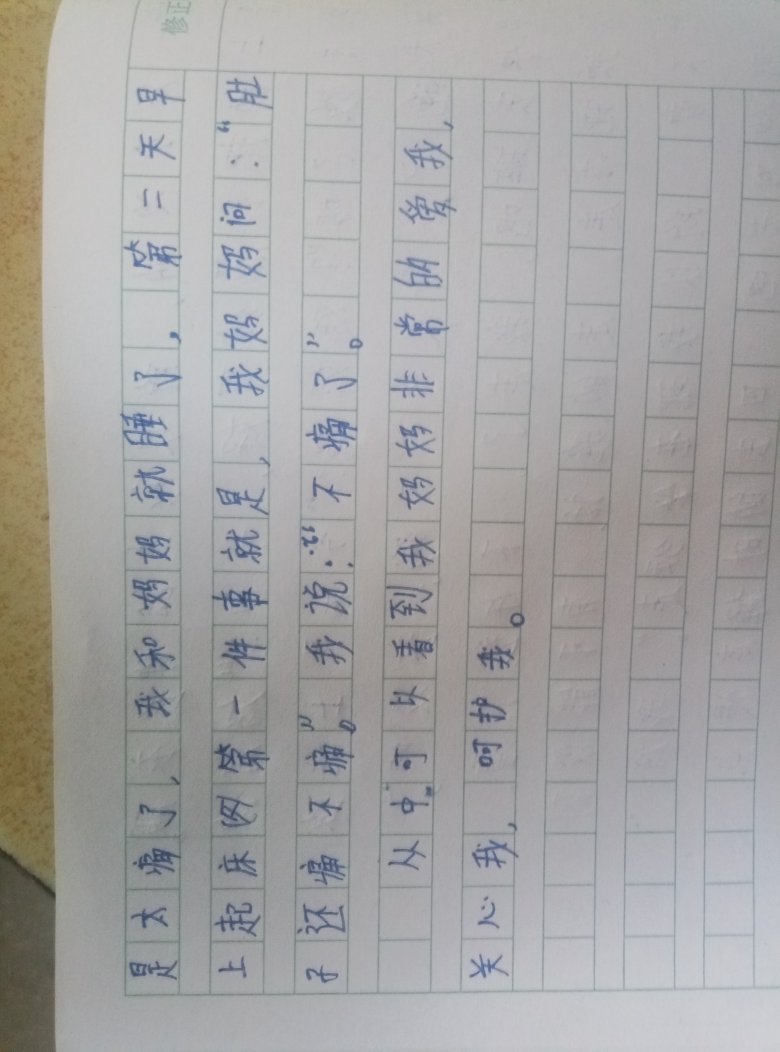 修正
是太痛了,我和妈妈就睡了,第二天早
上起床的第一件事就是,我妈妈问:“肚
子还痛不痛。”我说:“不痛了”。
从中可以看到我妈妈非常的爱我,
关心我,呵护我。